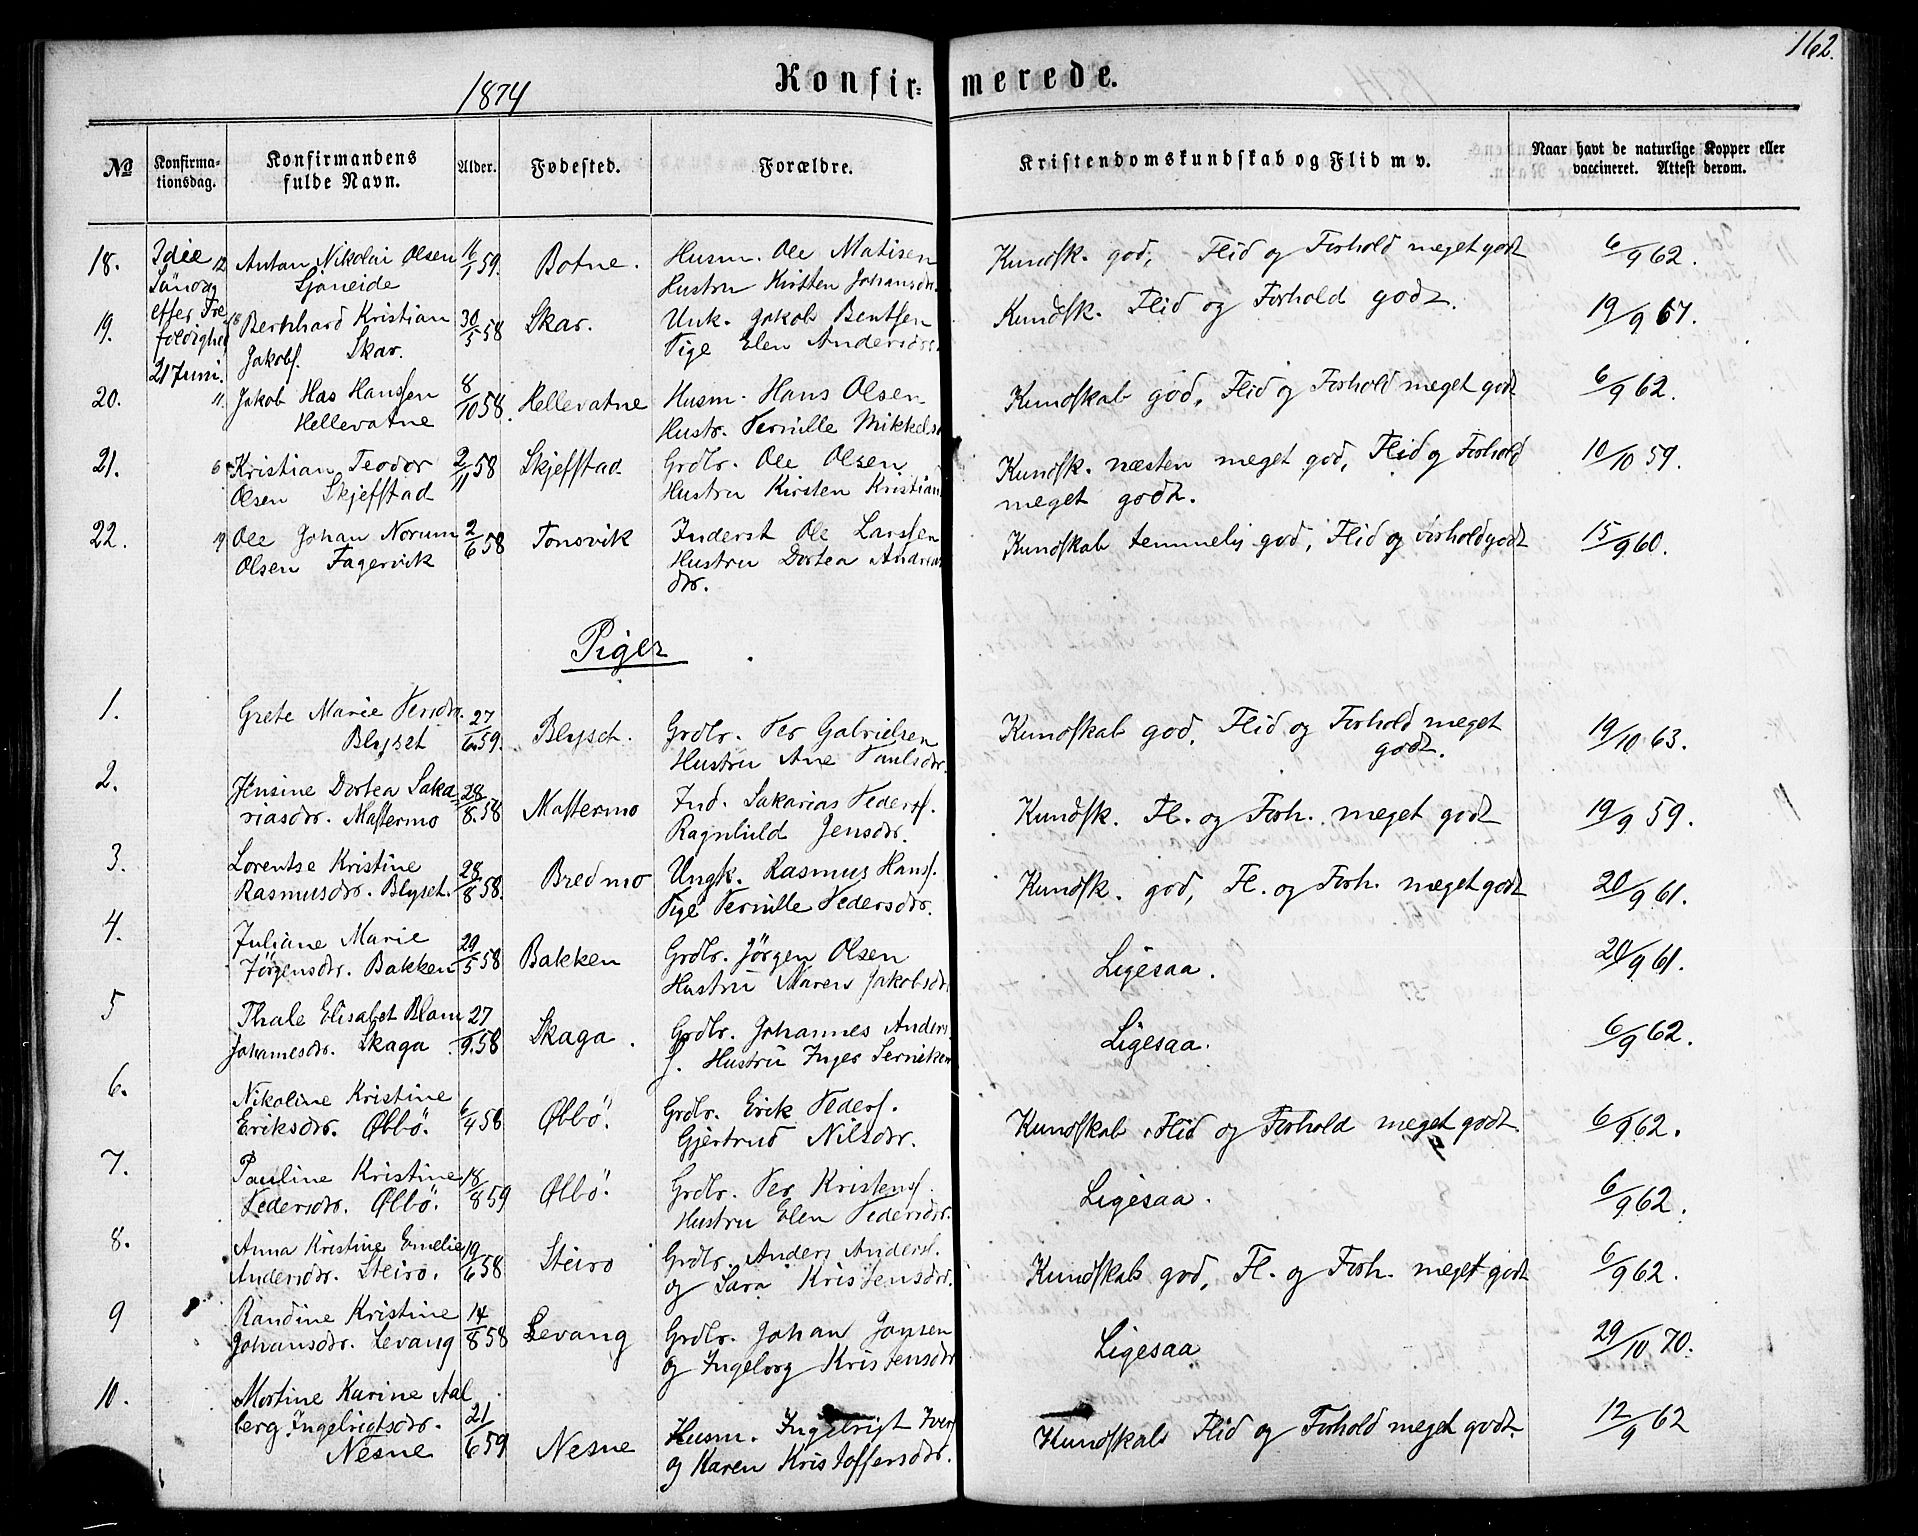 162.
1874
Konfir- merede.
No
Konfirma-
tionsdag.
Konfirmandens
fulde Navn.
Alder.
Fødested.
Forældre.
Kristendomskundskab og Flid m v.
Naar havt de naturlige Kopper eller
vaccineret. Attest derom.
3die
Söndag
efter Tre
foldighed
21 Juni.
18. 12 Anton Nikolai Olsen 11/1 59. Botne. Husm. Ole Matisen Kundsk. god, Flid og Forhold meget godt 6/9 62.
Sjoneide Hustru Kirsten Johansdr.
19. 18 Bernhard Kristian 30/5 58 Skar. Unk. Jakob Bentsen Kundsk. Flid og Forhold godt. 19/9 67.
Jakobs. Skar. Pige Elen Andersdr.
20. 11. Jakob Has Hanssen 8/10 58. Hellevatne Husm. Hans Olsen Kundskab god, Flid og Forhold meget godt 6/9 62.
Hellevatne Hustr. Pernille Mikkels
21. 6 Kristian Teodor 2/11 58 Skjefstad Grdbr. Ole Olsen Kundsk. næsten meget god, Flid og Forhold 10/10 59.
Olsen Skjefstad Hustru Kirsten Kristian meget godt.
22. 19 Ole Johan Norum 2/6 58 Tonsvik Inderst Ole Larssen Kundskab temmelig god, Flid og Forhold godt 15/9 60.
Olsen Fagervik Hustru Dortea Andreas
dr.
Piger
1. Grete Marie Persdr. 27/6 59. Blyset. Grdbr. Per Gabrielsen Kundskab god, Flid og Forhold meget 19/10 63.
Blyset Hustru Ane Paulsdr. godt.
2. Jensine Dortea Saka- 28/8 58 Mastermo Ind. Sakarias Peders. Kundsk. Fl. og Forh. meget godt 19/9 59.
riasdr. Mastermo Ragnhild Jensdr.
3. Lorentse Kristine 28/8 58. Bredmo Ungk. Rasmus Hans. Kundsk. god, Fl. og Forh. meget godt 20/9 61.
Rasmusdr. Blyset. Pige Pernille Pedersdr.
4. Juliane Marie 29/5 58 Bakken Grdbr. Jörgen Olsen Ligesaa. 20/9 61.
Jörgensdr. Bakken Hustru Maren Jakobsdr
5 Thale Elisabet Blam 27/9 58 Skaga. Grdbr. Johannes Anders Ligesaa. 6/9 62.
Johannesdr. Skaga. s. Hustru Inger
6. Nikoline Kristine 6/4 58 Ølbö. Grdbr. Erik Peders. Kundskab, Flid og Forhold meget godt. 6/9 62.
Eriksdr. Ølbö. Gjertrud Nilsdr.
7. Pauline Kristine 18/8 59 Ølbö. Grdbr. Per Kristens. Ligesaa. 6/9 62.
Pedersdr. Ølbö. Hustru Elen Pedersdr.
8. Anna Kristine Emelie 19/6 58 Steiro Grdbr. Anders Anders. Kundskab god, Fl. og Forh. meget godt 6/9 62.
Andersdr. Steiro. og Sara Kristensdr.
9 Randine Kristine 14/8 58 Levang Grdbr. Johan Jonsen Ligesaa 29/10 70.
Johansdr. Levang og Ingeborg Kristensdr
10. Mortine Karine Aal
berg Ingebrigtsdr. 21/6 59 Nesne Husm. Ingebrigt Ivers Kundskab Flid og Forhold meget godt. 12/9 62
Nesne og Karen Kristoffersdr.